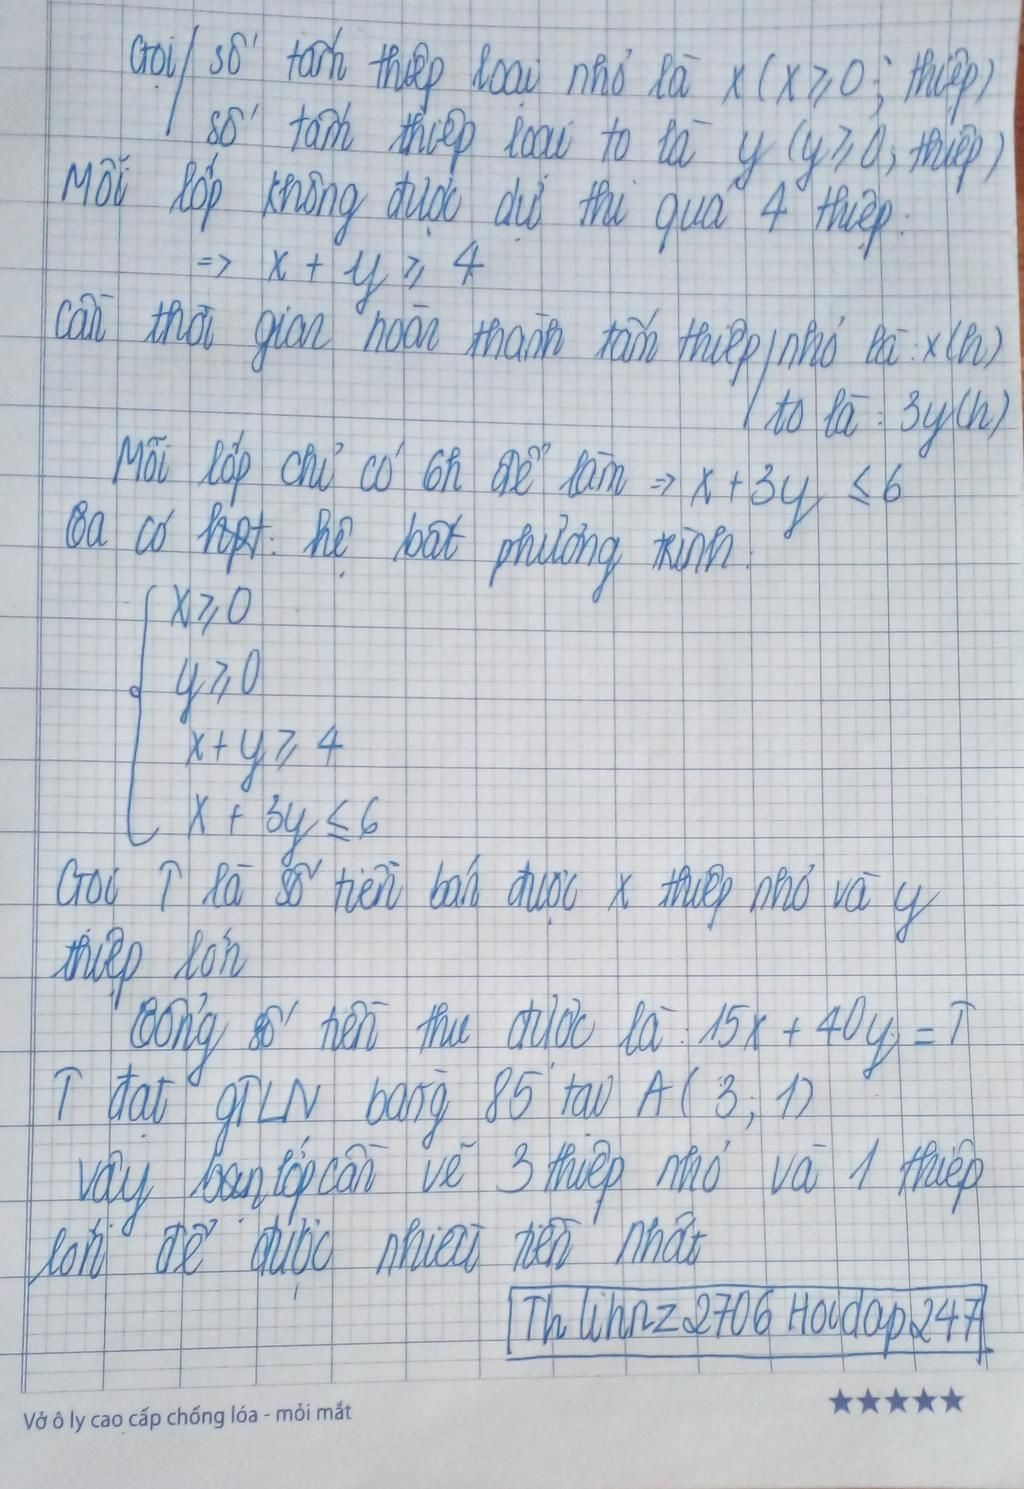 Gọi/ số tấm thiệp loại nhỏ là x (x ≥ 0; thiệp)
số tấm thiệp loại to là y (y ≥ 0; thiệp)
Mỗi lớp không được dự thi quá 4 thiệp.
=> x + y ≥ 4
cần thời gian hoàn thành tấm thiệp / nhỏ là: x(h)
to là: 3y(h)
Mỗi lớp chỉ có 6h để làm => x + 3y ≤ 6
Ta có hpt: hệ bất phương trình:
x ≥ 0
y ≥ 0
x + y ≥ 4
x + 3y ≤ 6
Gọi T là số tiền bán được x thiệp nhỏ và y
thiệp lớn
Tổng số tiền thu được là: 15x + 40y = T
T đạt GTLN bằng 85 tại A(3; 1)
Vậy lớp cần vẽ 3 thiệp nhỏ và 1 thiệp
lớn để được nhiều tiền nhất
Th linhnz2706 Hoidap247
Vở ô ly cao cấp chống lóa - mỏi mắt